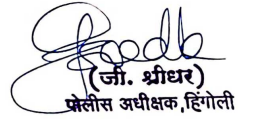 (जी. श्रीधर)
पोलीस अधीक्षक, हिंगोली